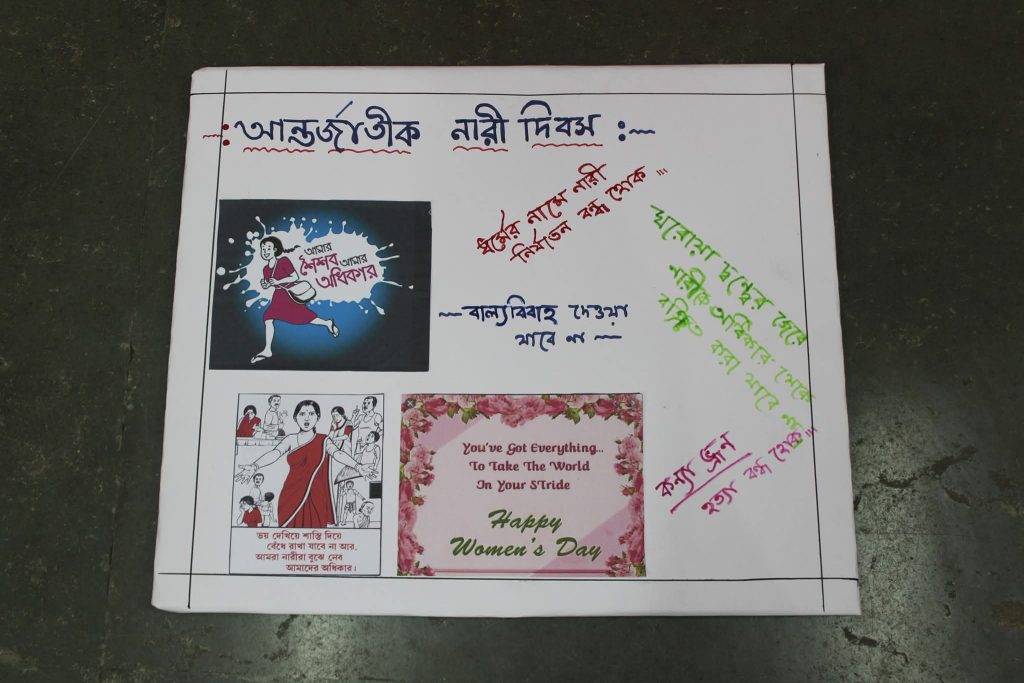 আন্তর্জাতীক নারী দিবস :~
ধর্মের নামে নারী
নির্যাতন বন্ধ হোক !!!
ঘরোয়া দ্বন্দ্বের জেরে
নারীকে অধিকার থেকে
বঞ্চিত করা যাবে না
আমার
শৈশব আমার
অধিকার
~ বাল্যবিবাহ দেওয়া
যাবে না ~
কন্যা ভ্রূন
হত্যা বন্ধ হোক !!
ভয় দেখিয়ে শাস্তি দিয়ে
বেঁধে রাখা যাবে না আর,
আমরা নারীরা বুঝে নেব
আমাদের অধিকার।
You've Got Everything...
To Take The World
In Your STride
Happy
Women's Day